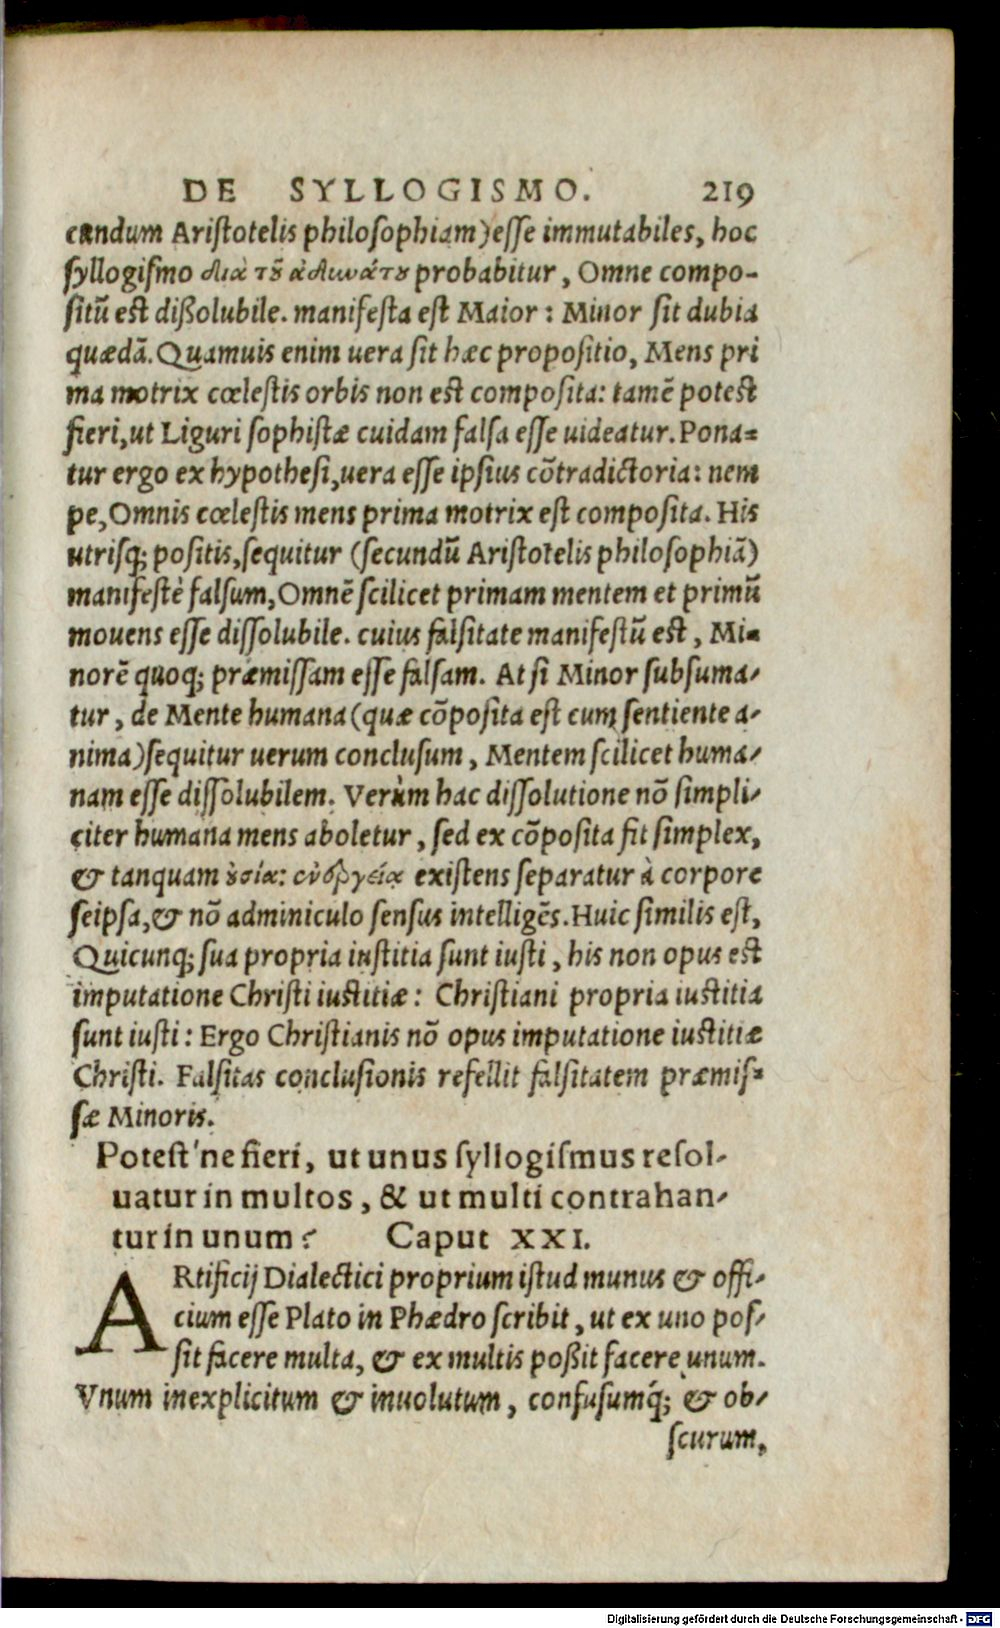 DE SYLLOGISMO. 219
cundum Aristotelis philosophiam) esse immutabiles, hoc
syllogismo διὰ τȣ͂ ἀδιυάτȣ probabitur, Omne compo-
sitū est dißolubile. manifesta est Maior: Minor sit dubia
quædā. Quamuis enim uera sit hæc propositio, Mens pri
ma motrix cœlestis orbis non est composita: tamē potest
fieri, ut Liguri sophistæ cuidam falsa esse uideatur. Pona-
tur ergo ex hypothesi, uera esse ipsius cōtradictoria: nem
pe, Omnis cœlestis mens prima motrix est composita. His
utrisq; positis, sequitur (secundū Aristotelis philosophiā)
manifestè falsum, Omnē scilicet primam mentem et primū
mouens esse dissolubile. cuius falsitate manifestū est, Mi-
norē quoq; præmissam esse falsam. At si Minor subsuma-
tur, de Mente humana (quæ cōposita est cum sentiente a-
nima) sequitur uerum conclusum, Mentem scilicet huma-
nam esse dissolubilem. Verùm hac dissolutione nō simpli-
citer humana mens aboletur, sed ex cōposita fit simplex,
& tanquam ȣ̓σία: ἐνεργεία existens separatur à corpore
seipsa, & nō adminiculo sensus intelligēs. Huic similis est,
Quicunq; sua propria iustitia sunt iusti, his non opus est
imputatione Christi iustitiæ: Christiani propria iustitia
sunt iusti: Ergo Christianis nō opus imputatione iustitiæ
Christi. Falsitas conclusionis refellit falsitatem præmis-
sæ Minoris.
Potest'ne fieri, ut unus syllogismus resol-
uatur in multos, & ut multi contrahan-
tur in unum? Caput XXI.
ARtificij Dialectici proprium istud munus & offi-
cium esse Plato in Phædro scribit, ut ex uno pos-
sit facere multa, & ex multis poßit facere unum.
Vnum inexplicitum & inuolutum, confusumq́; & ob-
scurum,
Digitalisierung gefördert durch die Deutsche Forschungsgemeinschaft - DFG